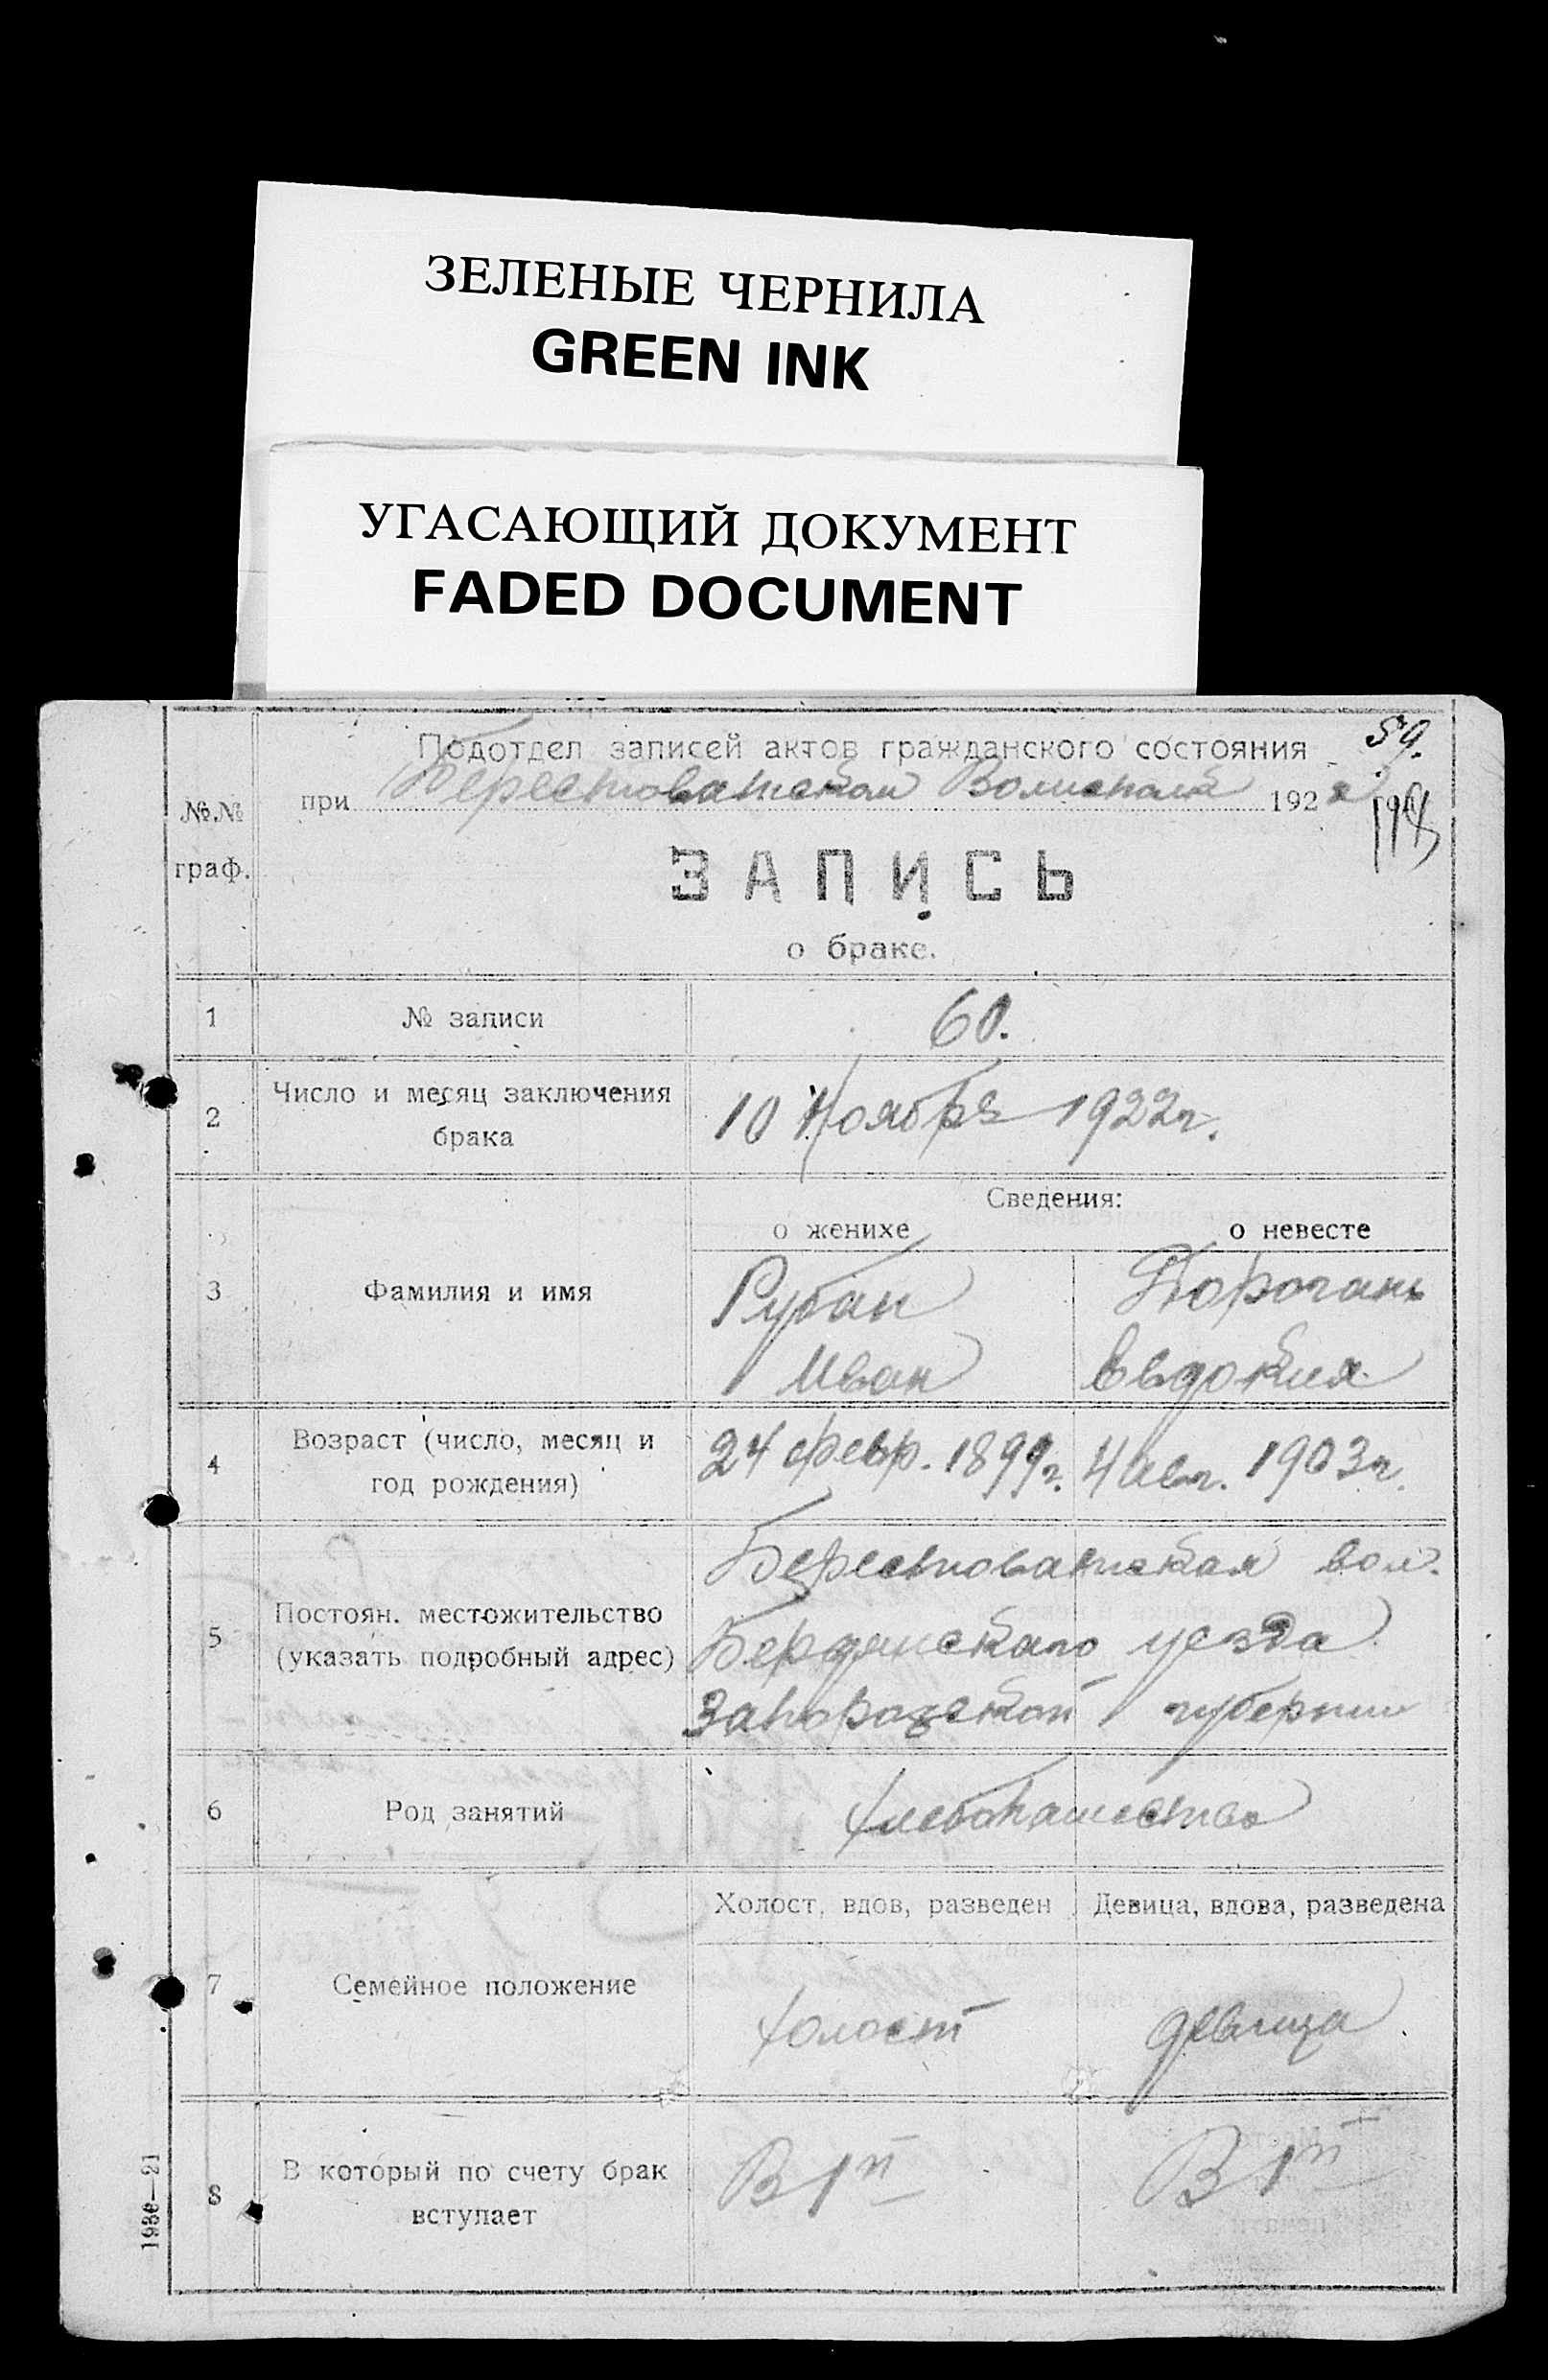 ЗЕЛЕНЫЕ ЧЕРНИЛА
GREEN INK
УГАСАЮЩИЙ ДОКУМЕНТ
FADED DOCUMENT
59.
Подотдел записей актов гражданского состояния
при Берестоватском 1922
№№
граф.
ЗАПИСЬ
о браке.
1 № записи 60.
2 Число и месяц заключения брака 10 Ноября 1922г.
Сведения:
о женихе о невесте
3 Фамилия и имя Рубан
Иван Евдокия
4 Возраст (число, месяц и год рождения) 24 февр. 1899г. 4 Авг. 1903г.
5 Постоян. местожительство (указать подробный адрес) Берестоватская вол.
Бердянскаго уезда
Запорожской губернии
6 Род занятий хлебопашество
Холост, вдов, разведен Девица, вдова, разведена
7 Семейное положение холост девица
8 В который по счету брак вступает В 1й В 1й
1936—21